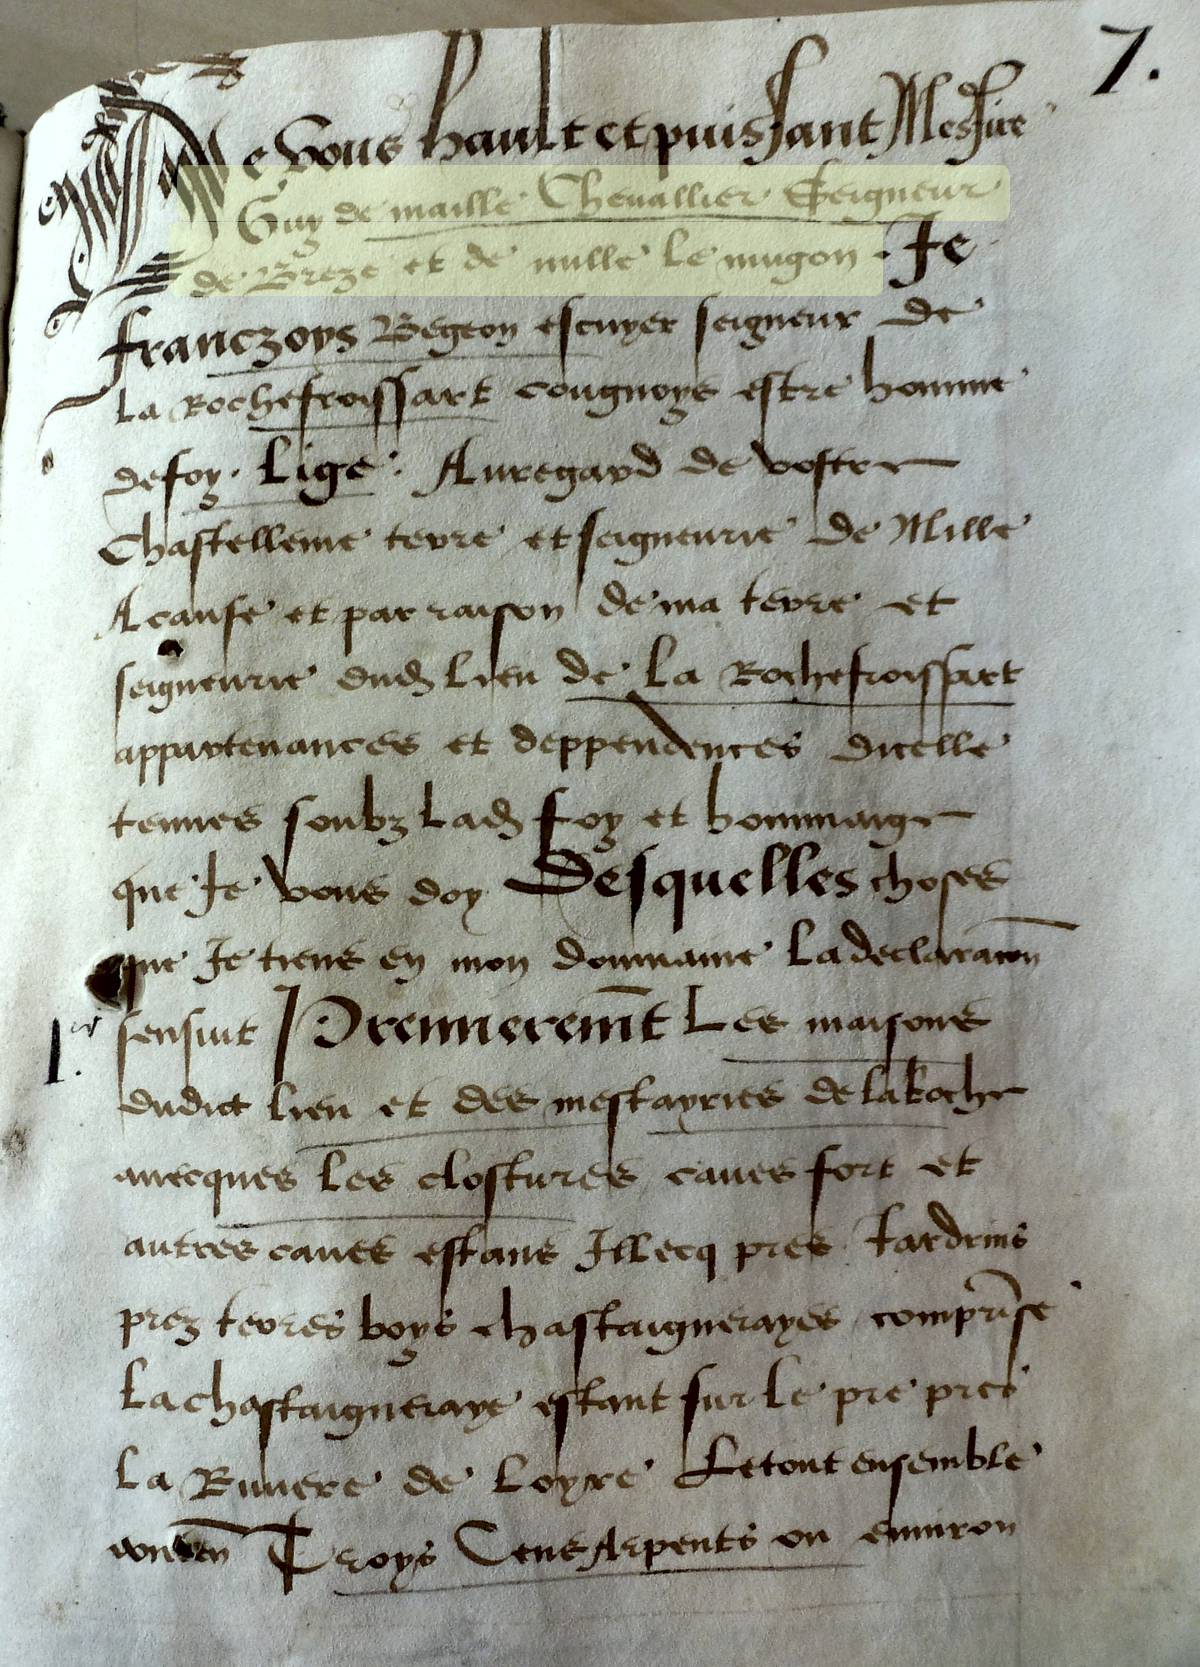 7.
De vous hault et puissant Messire
Guy de maille Chevallier Seigneur
de Breze et de mille le mugon . Je
franczoys Begeon escuyer seigneur de
La Rochefroissart congnoys estre homme
de foy . Lige . Au regard de vostre
Chastellenie terre et seigneurie de Mille
A cause et par raison de ma terre et
seigneurie dud lieu de La Rochefroissart
appartenances et deppendences dicelle
tenues soubz lad foy et hommaige
que Je vous doy Desquelles choses
que Je tiens en mon dommaine La declaracion
1er sensuit Premieremt Les maisons
dudict lieu et des mestayries de la Roche
avecques les clostures caves fort et
autres caves estans Illecq pres Jardrins
prez terres boys chastaignerayes comprise
La chastaigneraye estant sur le pre pres
La Riviere de Loyre Le tout ensemble
Troys Cens Arpents ou environ